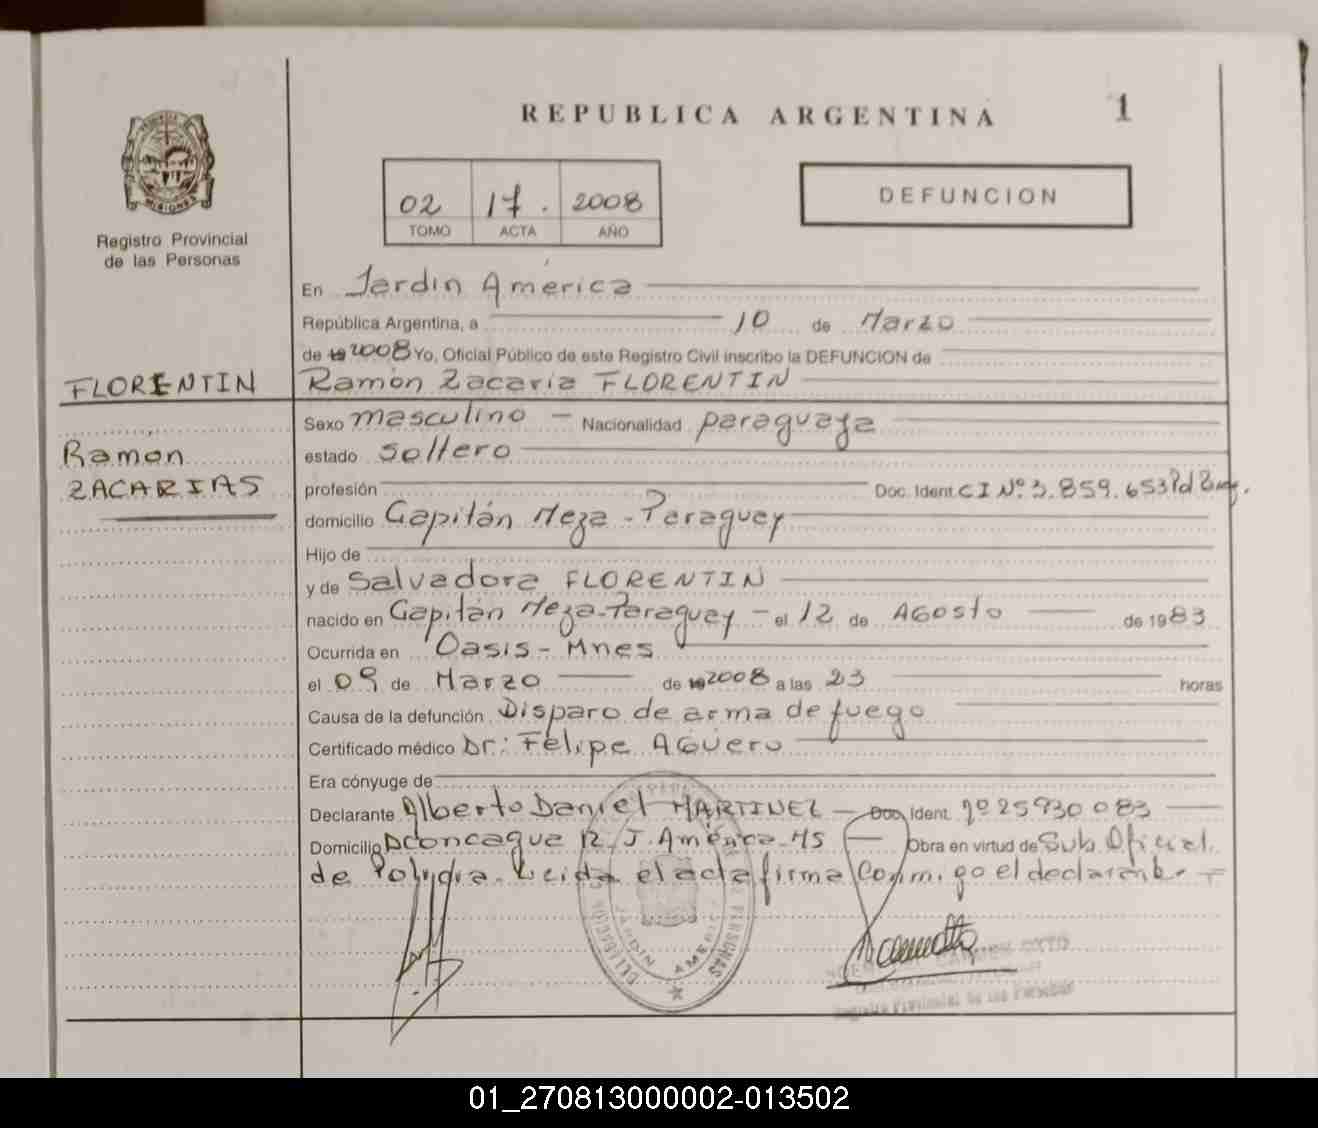 REPUBLICA ARGENTINA
1
MISIONES
Registro Provincial
de las Personas
02 17. 2008
TOMO ACTA AÑO
DEFUNCION
En Jardin América
República Argentina, a 10 de Marzo
de 19 2008 Yo, Oficial Público de este Registro Civil inscribo la DEFUNCION de
FLORENTIN
Ramón Zacaria FLORENTIN
Sexo masculino - Nacionalidad paraguaya
Ramon
estado soltero
ZACARIAS
profesión Doc. Ident. C I Nº 3.859.653
domicilio Capitán Meza - Paraguay
Hijo de
y de Salvadora FLORENTIN
nacido en Capitán Meza - Paraguay - el 12 de Agosto de 1983
Ocurrida en Oasis - Mnes
el 09 de Marzo de 19 2008 a las 23 horas
Causa de la defunción Disparo de arma de fuego
Certificado médico Dr: Felipe AGÜERO
Era cónyuge de
Declarante Alberto Daniel MARTINEZ - Doc. Ident. Nº 25930083
Domicilio Aconcagua R. J. América - MS - Obra en virtud de Sub. Oficial
de Policia. Leida el acta firma Conmigo el declarante
JARDIN AMERICA
Registro Provincial de las Personas
01_270813000002-013502